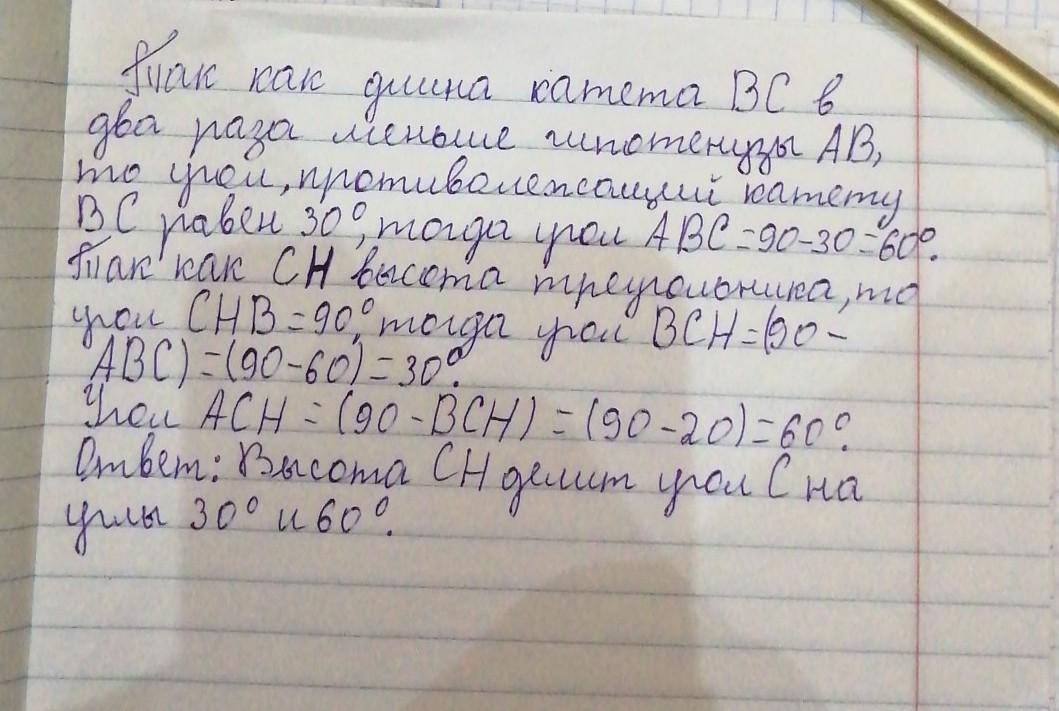 Так как длина катета BC в
два раза меньше гипотенузы AB,
то угол, противолежащий катету
BC равен 30°, тогда угол ABC=90-30=60°.
Так как CH высота треугольника, то
угол CHB=90°, тогда угол BCH=(90-
ABC)=(90-60)=30°.
Угол ACH=(90-BCH)=(90-20)=60°.
Ответ: Высота CH делит угол C на
углы 30° и 60°.